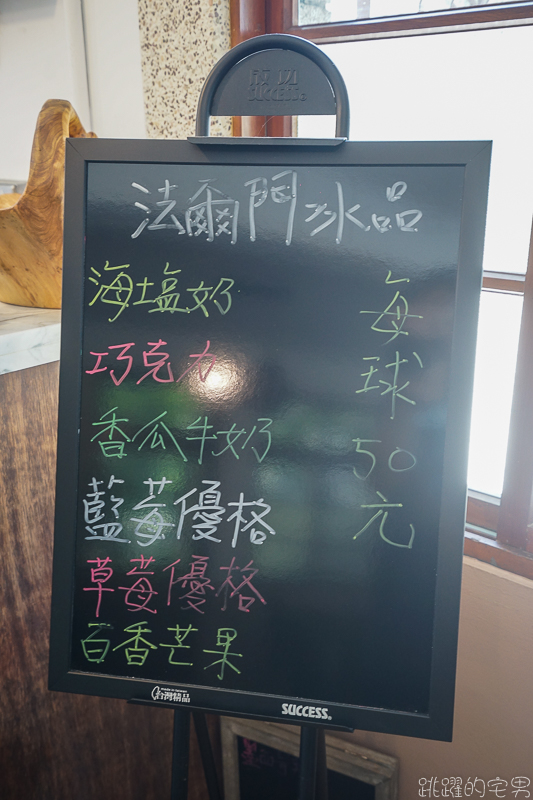 成功
SUCCESS
法爾門冰品
海塩奶
巧克力
香瓜牛奶
藍莓優格
草莓優格
百香芒果
每球50元
台灣精品
SUCCESS
跳躍的宅男